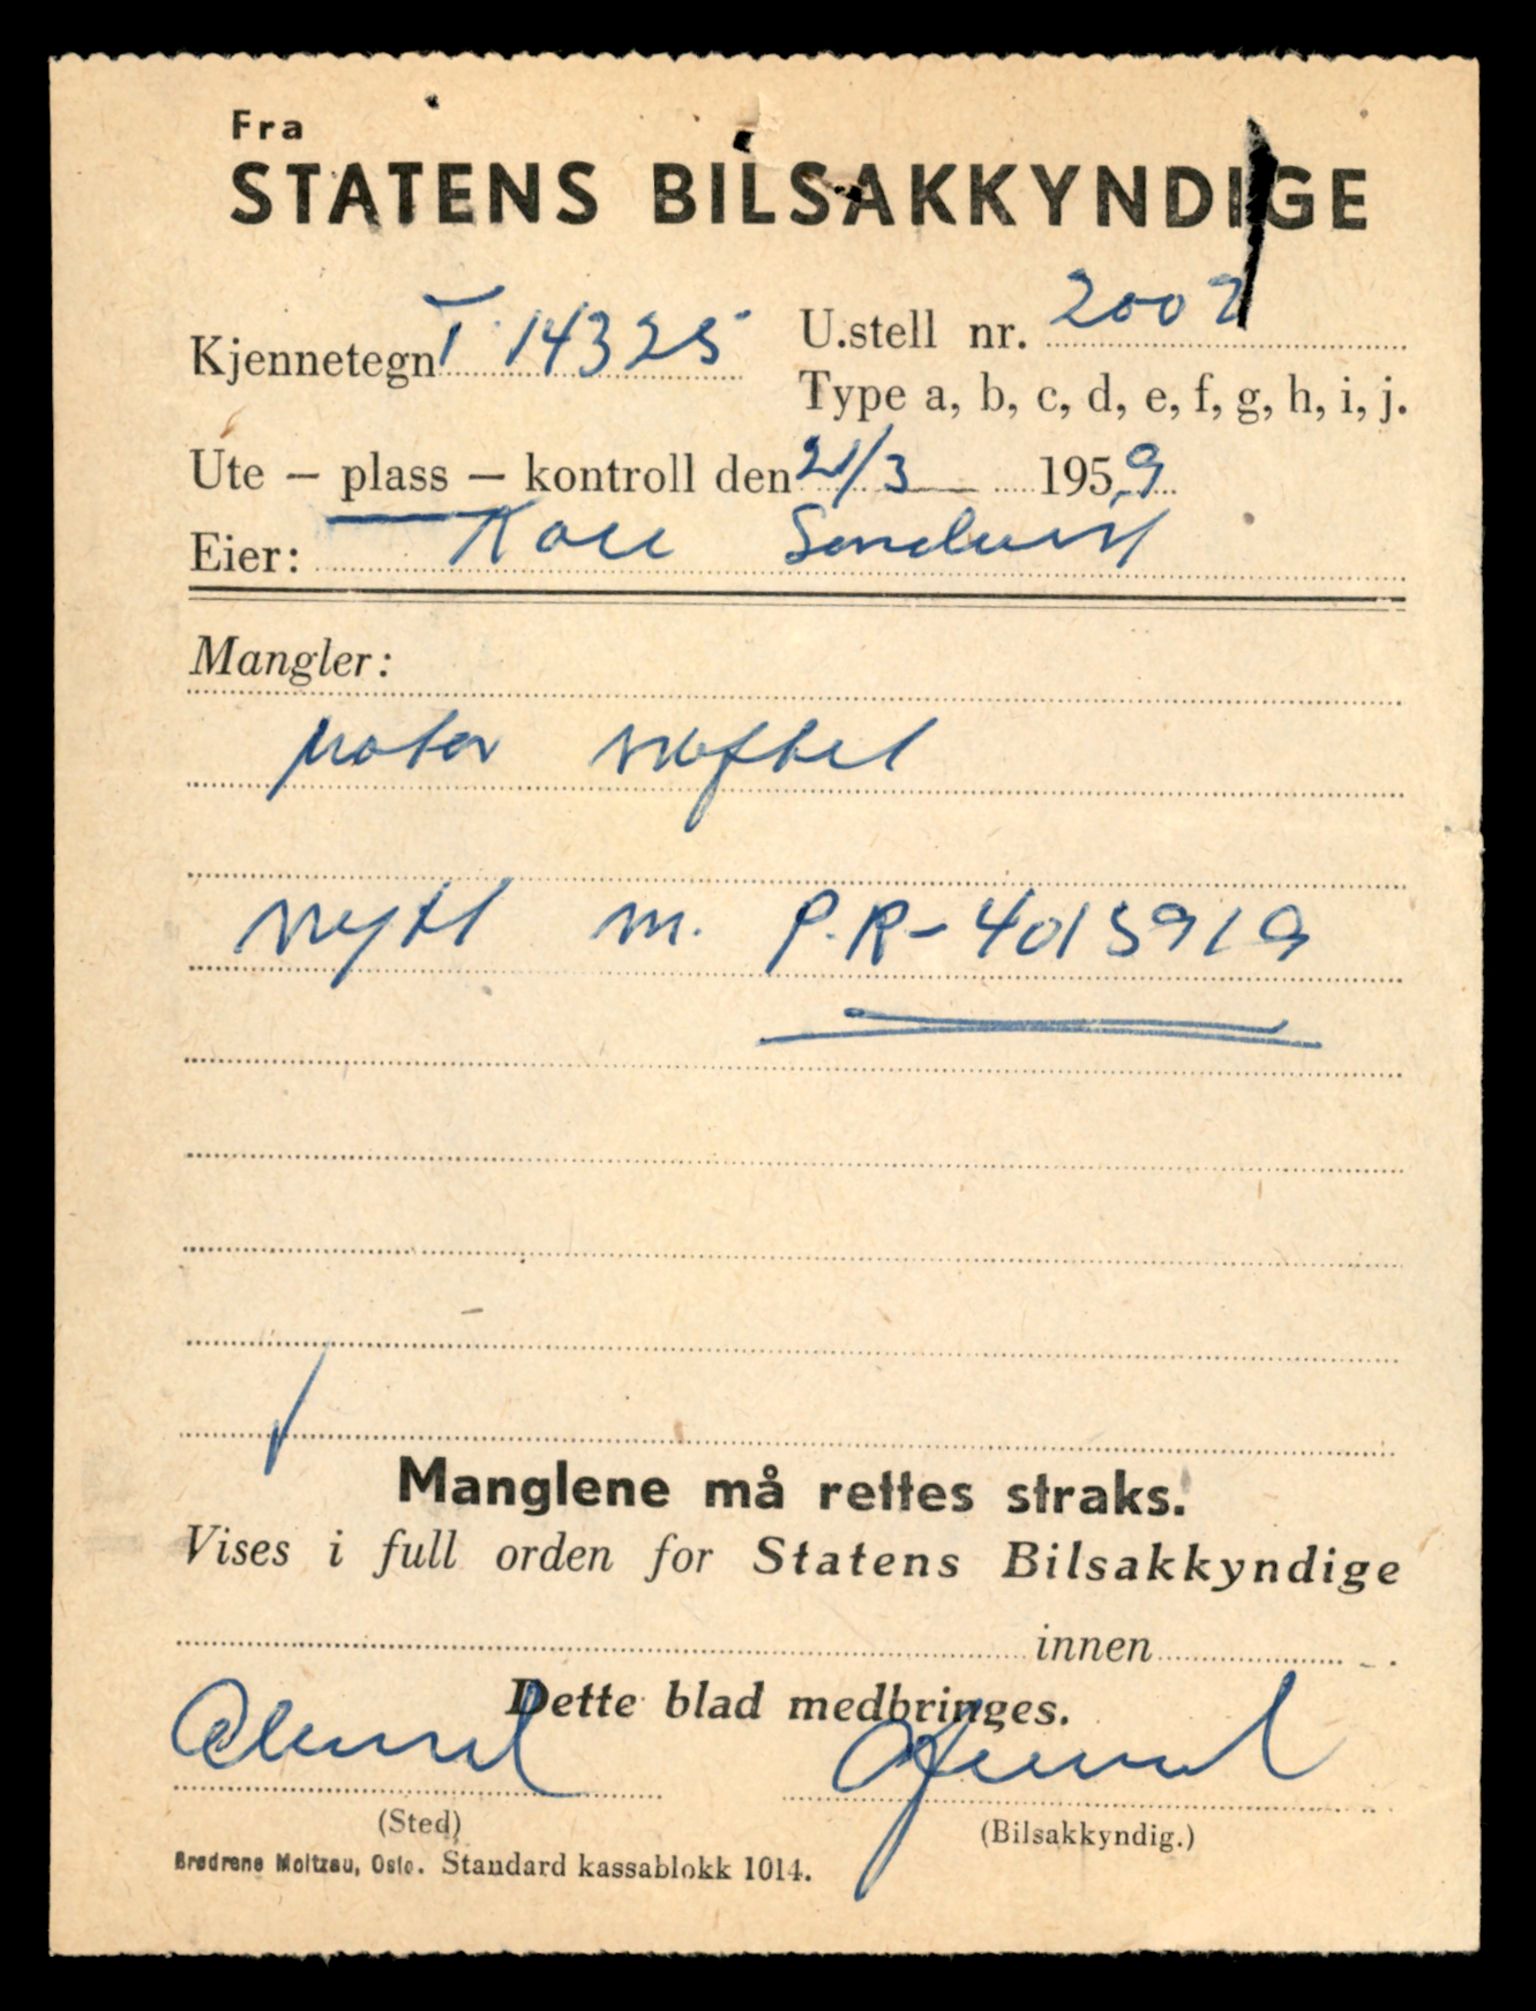 Fra
STATENS BILSAKKYNDIGE
Kjennetegn T 14325 U.stell nr. 2002
Type a, b, c, d, e, f, g, h, i, j.
Ute – plass – kontroll den 21/3 1959
Eier: Kåre
Mangler:
Motor skiftet
nytt m. P.R-4015919
Manglene må rettes straks.
Vises i full orden for Statens Bilsakkyndige
innen
Dette blad medbringes.
(Sted)
(Bilsakkyndig.)
Brødrene Moltzau, Oslo. Standard kassablokk 1014.